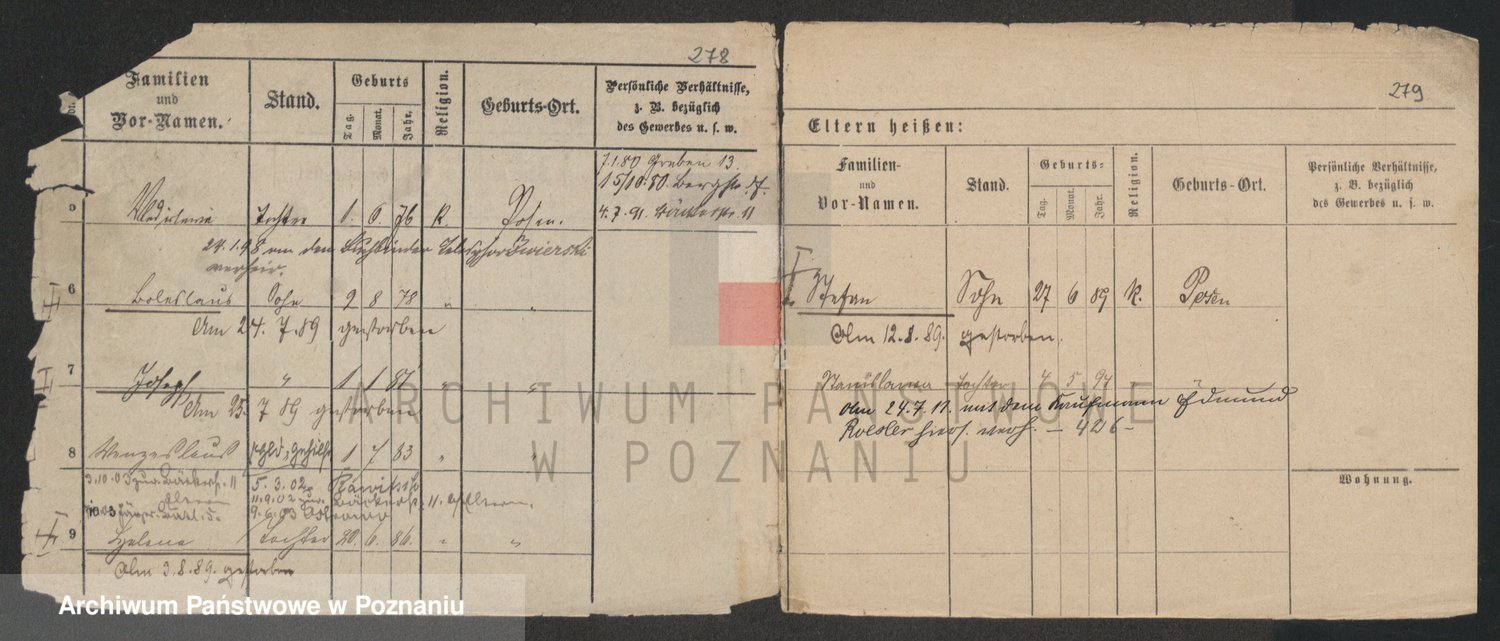 278
Familien und Vor-Namen.
Stand.
Geburts
Tag.
Monat.
Jahr.
Religion.
Geburts-Ort.
Persönliche Verhältnisse,
z. B. bezüglich
des Gewerbes u. s. w.
7.1.80 Graben 13.
15/10.80. Bergstr.
4.7.91. 11
5 Tochter 1. 6. 76 K. Posen.
24.1.98 mit dem Telesphor Zwierski
verheir.
6 Boleslaus Sohn 2 8 78 " "
Am 24. 7. 89 gestorben
7 Joseph " 1 1 81 " "
Am 25. 7 89 gestorben
8 Wenzeslaus 1 7 83 " "
3.10.03 zur. Bäckerstr. 11
Eltern
5. 3. 02
11.9.02 zur. Bäckerstr. 11 Eltern.
9.6.03
9 Helena Tochter 20 6. 86. " "
Am 3.8.89. gestorben
279
Eltern heißen:
Familien-
und
Vor-Namen.
Stand.
Geburts-
Tag.
Monat.
Jahr.
Religion.
Geburts-Ort.
Persönliche Verhältnisse,
z. B. bezüglich
des Gewerbes u. s. w.
Stefan Sohn 27 6 89 K. Posen
Am 12.8.89. gestorben.
Stanislawa Tochter 4 5 94
Am 24.7.11. mit dem Kaufmann Edmund
Roesler hiers. verh. - 426 -
Wohnung.
ARCHIWUM PAŃSTWOWE
W POZNANIU
Archiwum Państwowe w Poznaniu